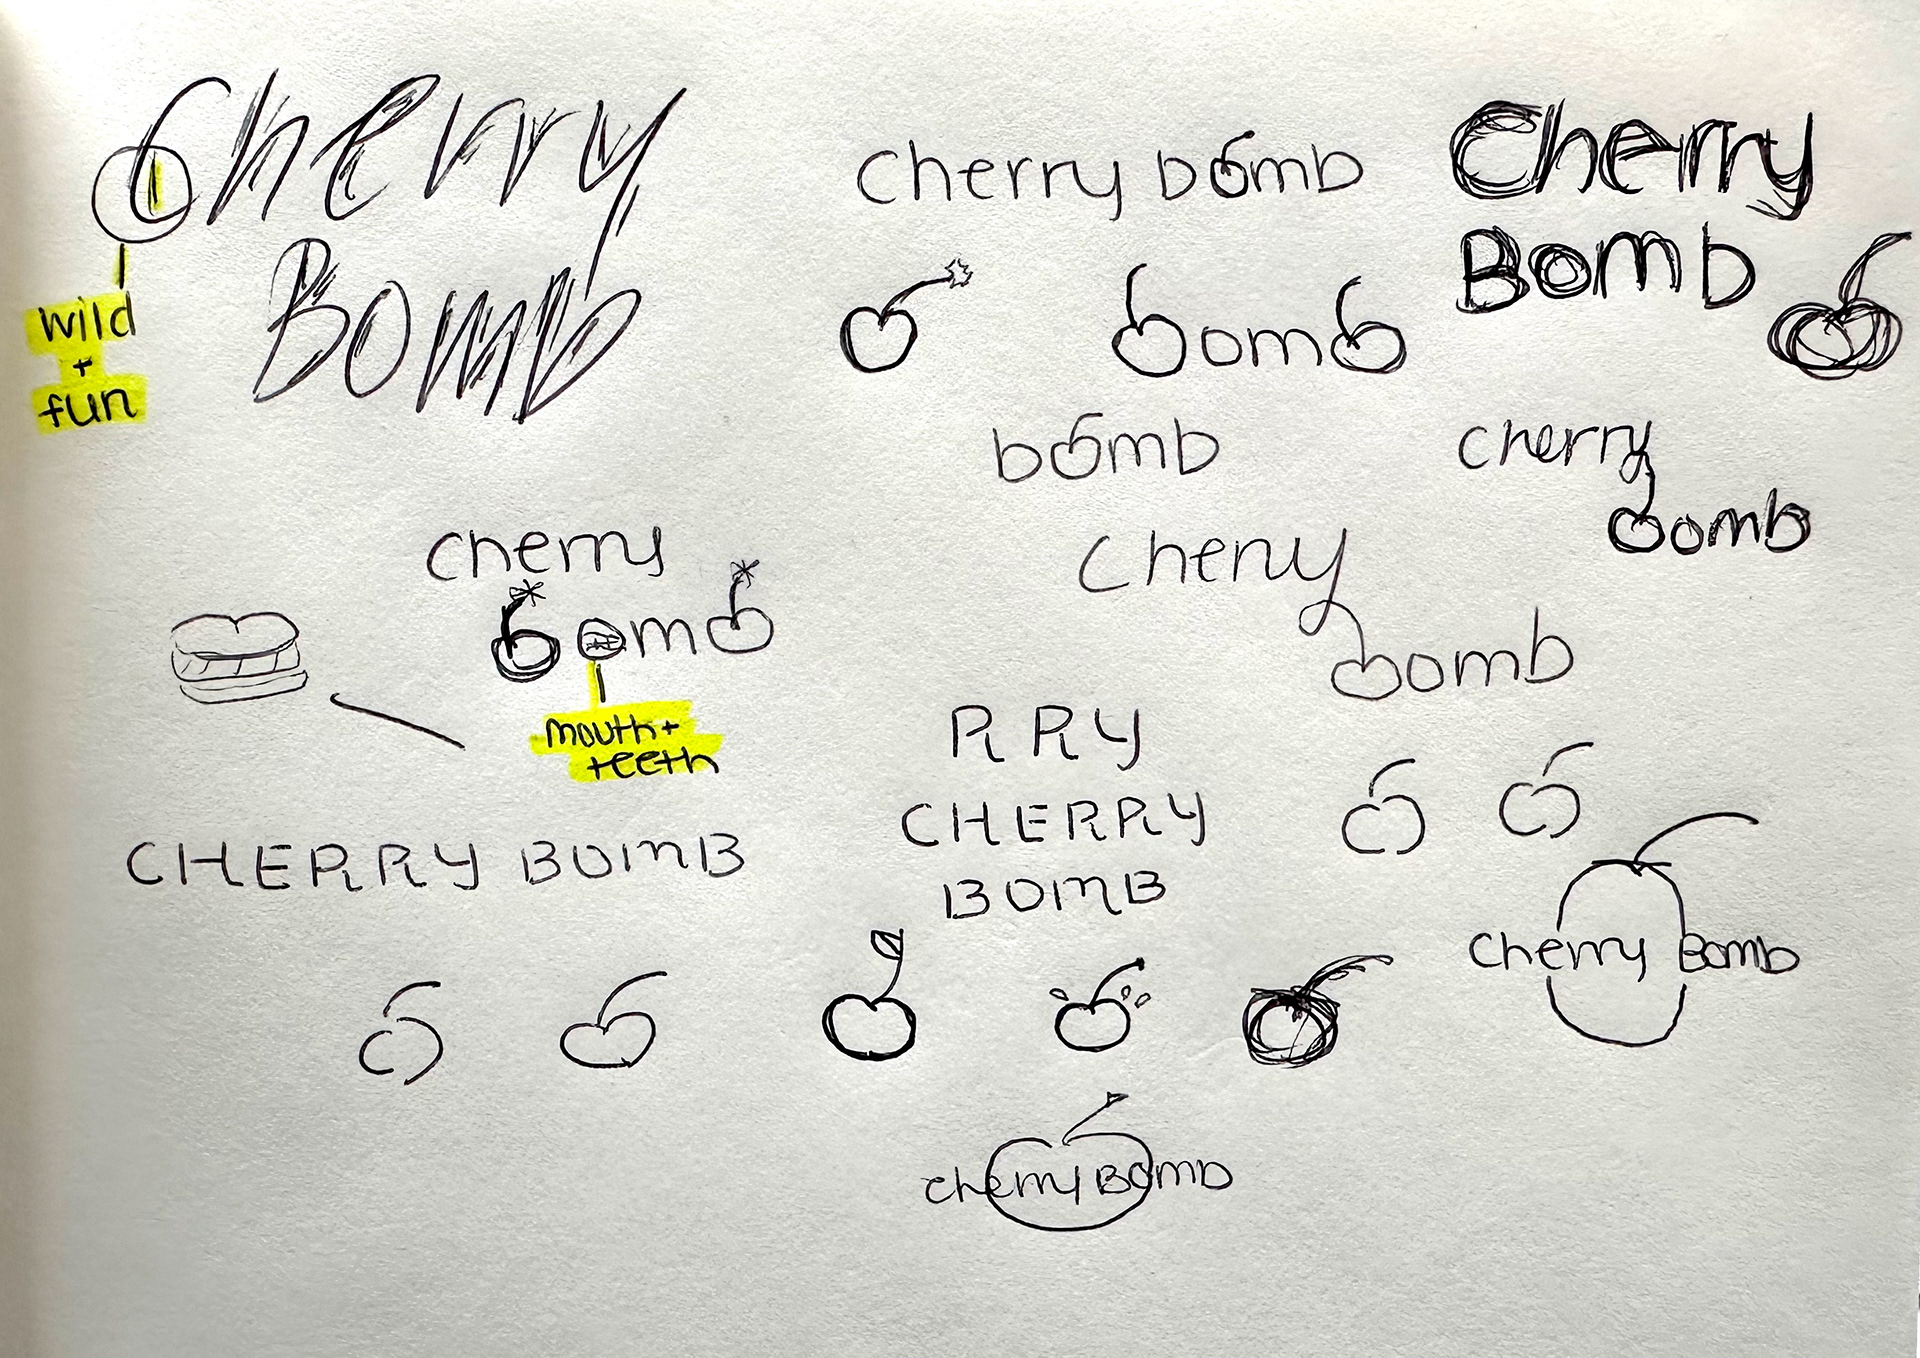 Cherry
Bomb
wild
+
fun
Cherry bomb
Cherry
Bomb
bomb
bomb
cherry
bomb
cherry
bomb
mouth +
teeth
Cherry
bomb
RRY
CHERRY
BOMB
CHERRY BOMB
Cherry Bomb
Cherry Bomb